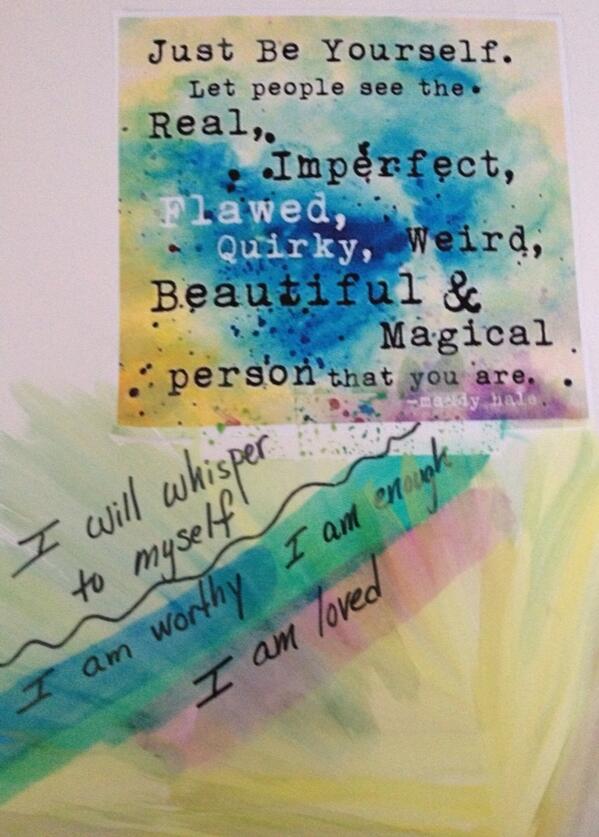 Just Be Yourself.
Let people see the
Real,
Imperfect,
Flawed,
Quirky, Weird,
Beautiful &
Magical
person that you are.
-mandy hale
I will whisper
to myself
I am worthy
I am enough
I am loved